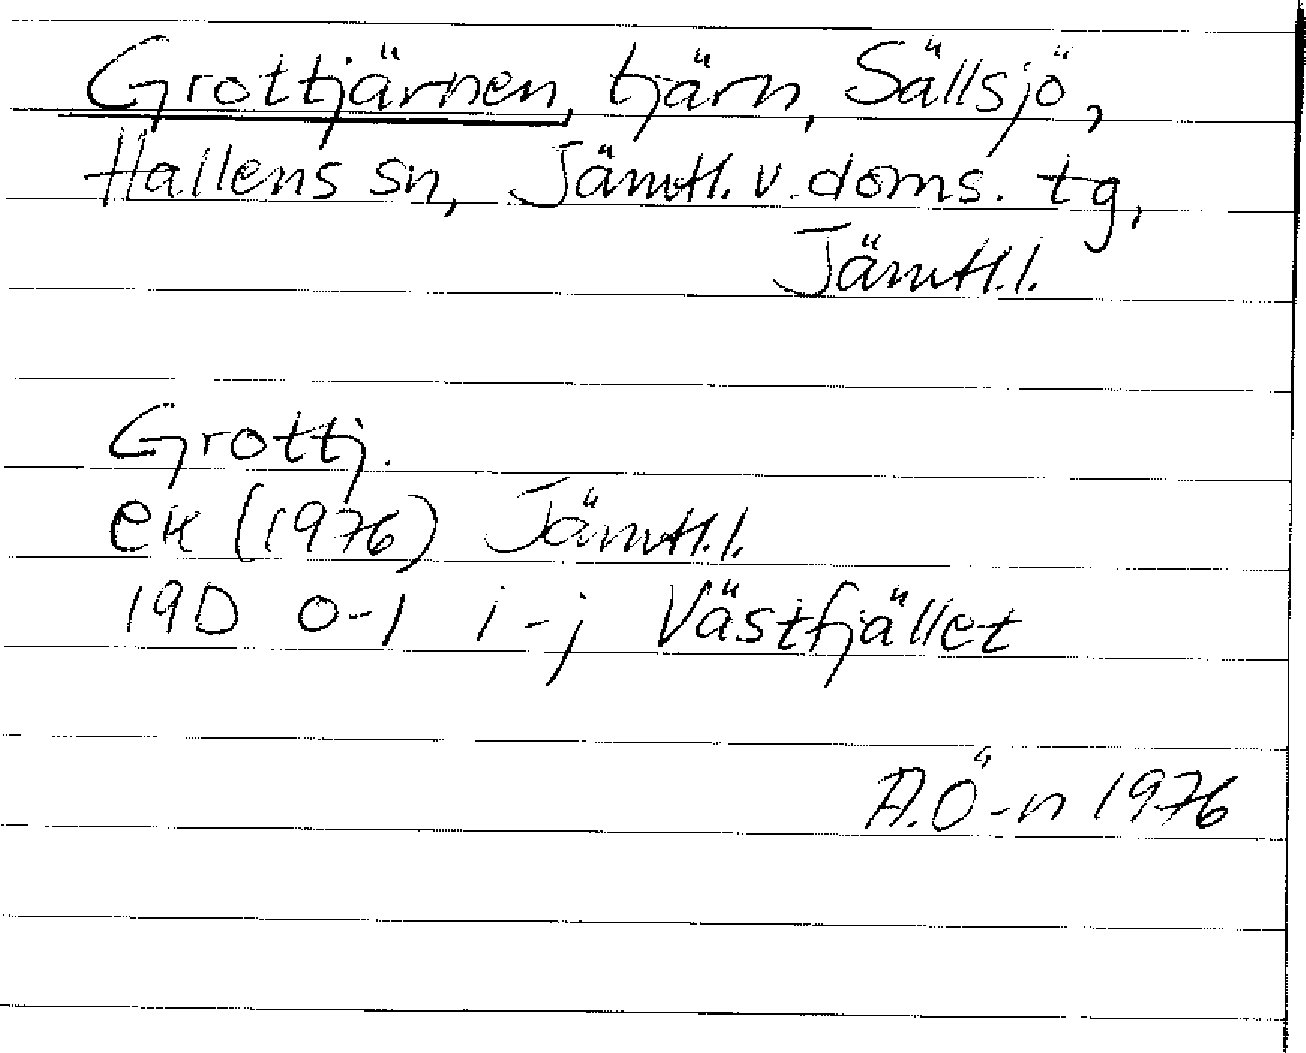 Grottjärnen, tjärn, Sällsjö,
Hallens sn, Jämtl. v. doms. tg,
Jämtl. l.
Grottj.
ek (1976) Jämtl. l.
19D 0-1 i-j Västfjället
A. Ö-n 1976